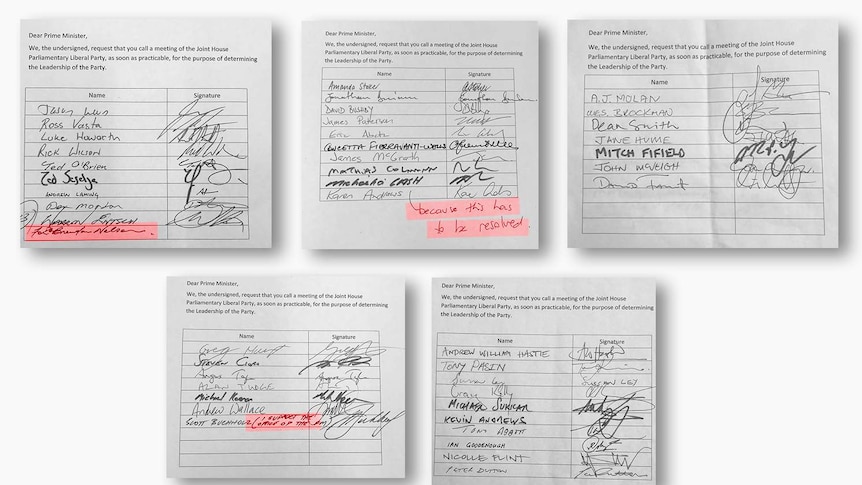 Dear Prime Minister,
We, the undersigned, request that you call a meeting of the Joint House
Parliamentary Liberal Party, as soon as practicable, for the purpose of determining
the Leadership of the Party.
Name Signature
Jason
Ross Vasta
Luke Howarth
Rick Wilson
Ted O'Brien
Zed Seselja
ANDREW LAMING
Morton
Warren Entsch
For Brendan Nelson.
Dear Prime Minister,
We, the undersigned, request that you call a meeting of the Joint House
Parliamentary Liberal Party, as soon as practicable, for the purpose of determining
the Leadership of the Party.
Name Signature
Amanda
Jonathon
DAVID BUSHBY
James Paterson
Eric Abetz
CONCETTA FIERRAVANTI-WELLS
James McGrath
MATHIAS CORMANN
MICHAELIA CASH
Karen Andrews
because this has
to be resolved.
Dear Prime Minister,
We, the undersigned, request that you call a meeting of the Joint House
Parliamentary Liberal Party, as soon as practicable, for the purpose of determining
the Leadership of the Party.
Name Signature
A.J. MOLAN
BROCKMAN
Dean Smith
JANE HUME
MITCH FIFIELD
JOHN McVEIGH
David
Dear Prime Minister,
We, the undersigned, request that you call a meeting of the Joint House
Parliamentary Liberal Party, as soon as practicable, for the purpose of determining
the Leadership of the Party.
Name Signature
Greg Hunt
STEVEN CIOBO
Angus
ALAN TUDGE
Michael Keenan
Andrew Wallace
SCOTT BUCHHOLZ (I SUPPORT THE
OFFICE OF THE PM)
Dear Prime Minister,
We, the undersigned, request that you call a meeting of the Joint House
Parliamentary Liberal Party, as soon as practicable, for the purpose of determining
the Leadership of the Party.
Name Signature
ANDREW WILLIAM HASTIE
TONY PASIN
Sussan Ley SUSSAN LEY
Craig Kelly
MICHAEL SUKKAR
KEVIN ANDREWS
TONY ABBOTT
IAN GOODENOUGH
NICOLLE FLINT
PETER DUTTON